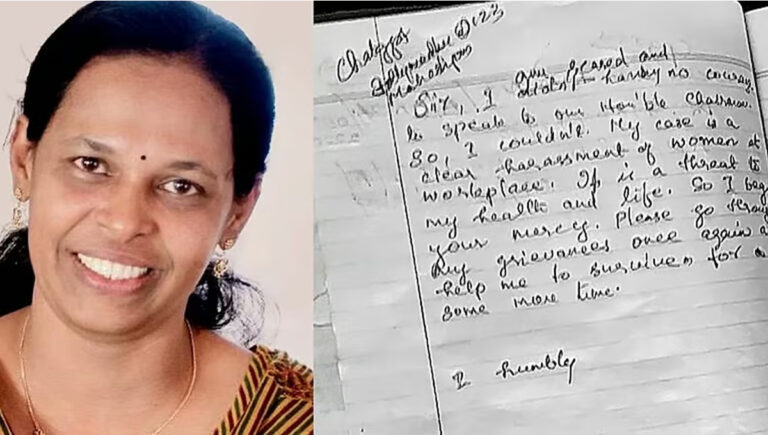 Sir, I am scared and
having no courage
to speak to our Hon'ble Chairman.
So, I couldn't. My case is a
clear harassment of women at
workplace. It is a threat to
my health and life. So I beg
your mercy. Please go throu
my grievances once again a
help me to survive for a
some more time.
I humbly